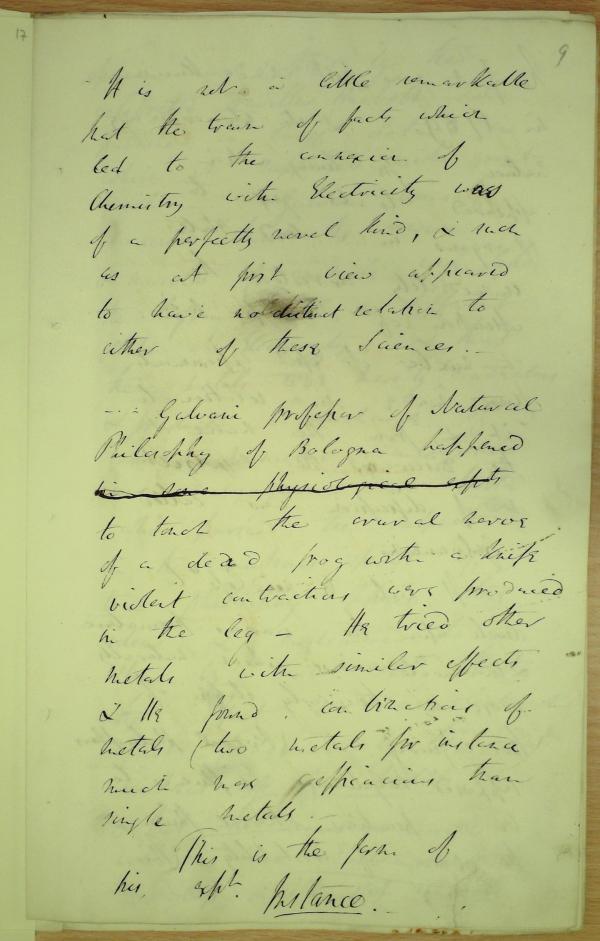 17
9
It is not a little remarkable
that the train of facts which
led to the connexion of
Chemistry with Electricity was
of a perfectly novel kind, & such
as at first view appeared
to have no distinct relation to
either of these Sciences. -
Galvani professor of Natural
Philosophy of Bologna happened
in some physiological expts
to touch the crural nerve
of a dead frog with a knife
violent contractions were produced
in the leg - He tried other
metals with similar effects
& He found combinations of
metals (two metals for instance
much more efficacious than
single metals. -
This is the form of
his expt. Instance. -